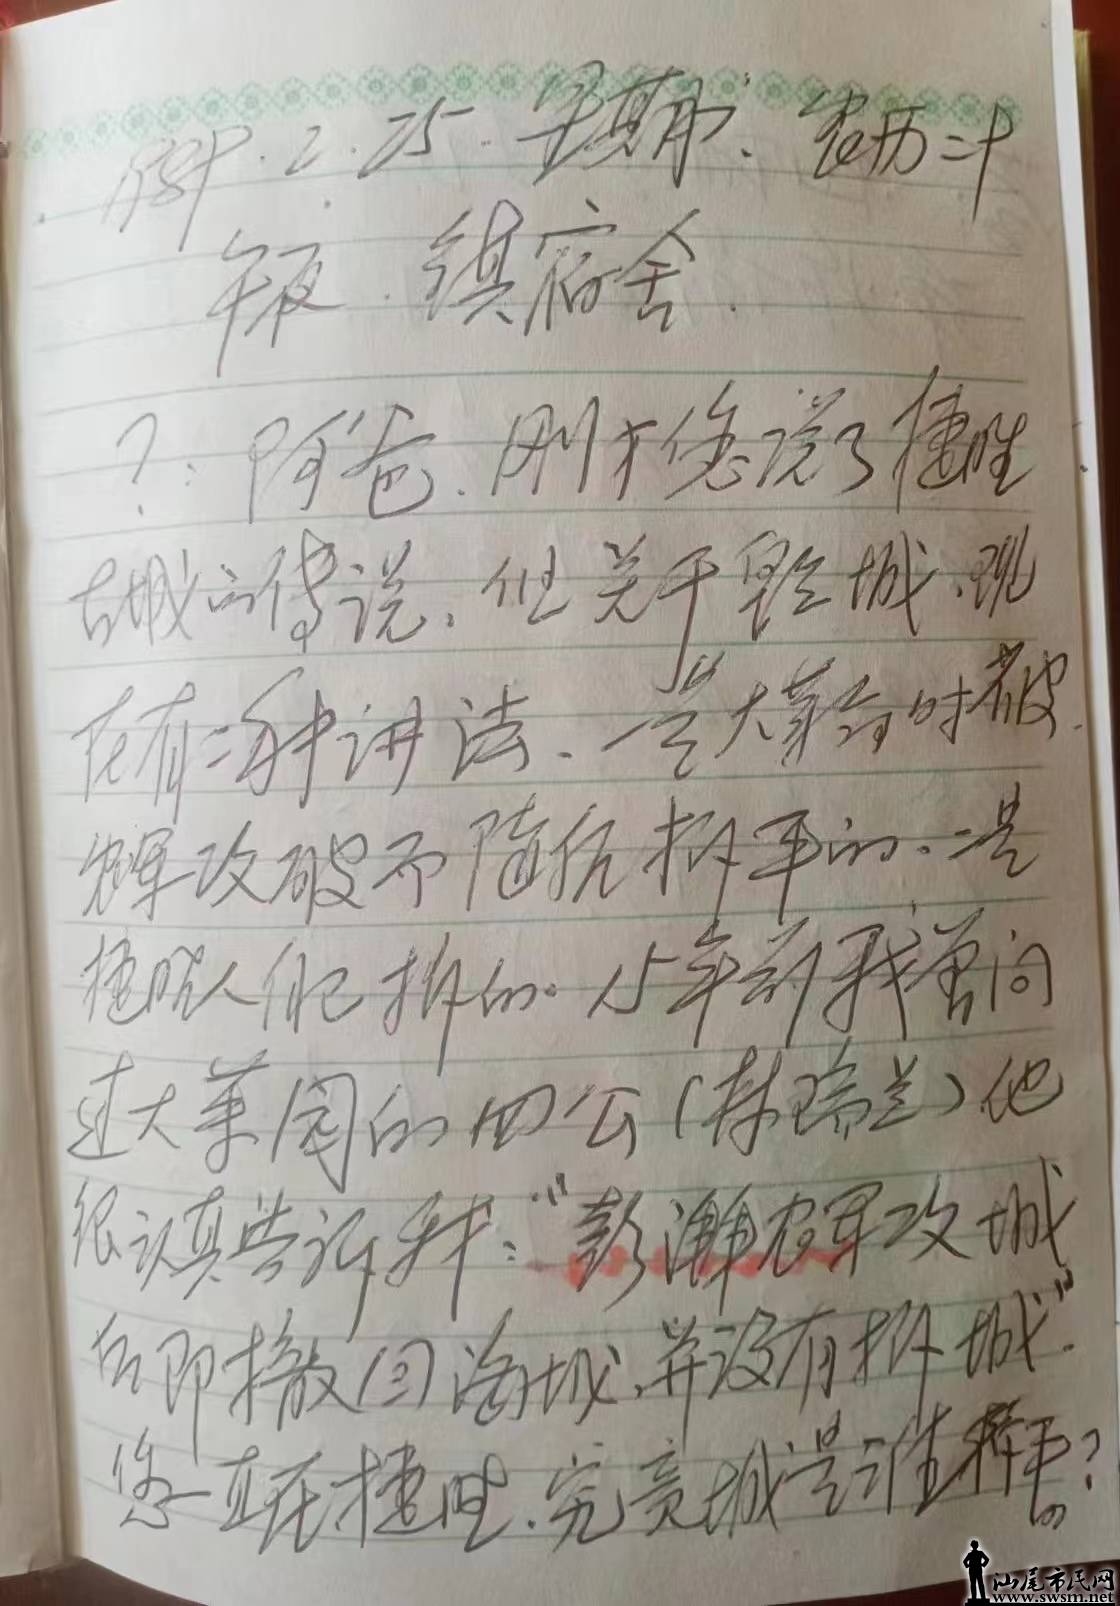 2.25. 星期 农历二十
午夜. 镇宿舍.
?: 阿爸、刚才您说了捷胜
古城的传说, 但关于毁城, 现
在有二种讲法、一是大革命时被
农军攻破而随后拆平的. 二是
捷胜人自己拆的. 15年前我曾问
过大菜园的四公(林瑞兰)他
很认真告诉我: "彭湃农军攻城
后即撤回海城, 并没有拆城".
您一直在捷胜. 究竟城是谁拆毛的?
汕尾市民网
www.swsm.net